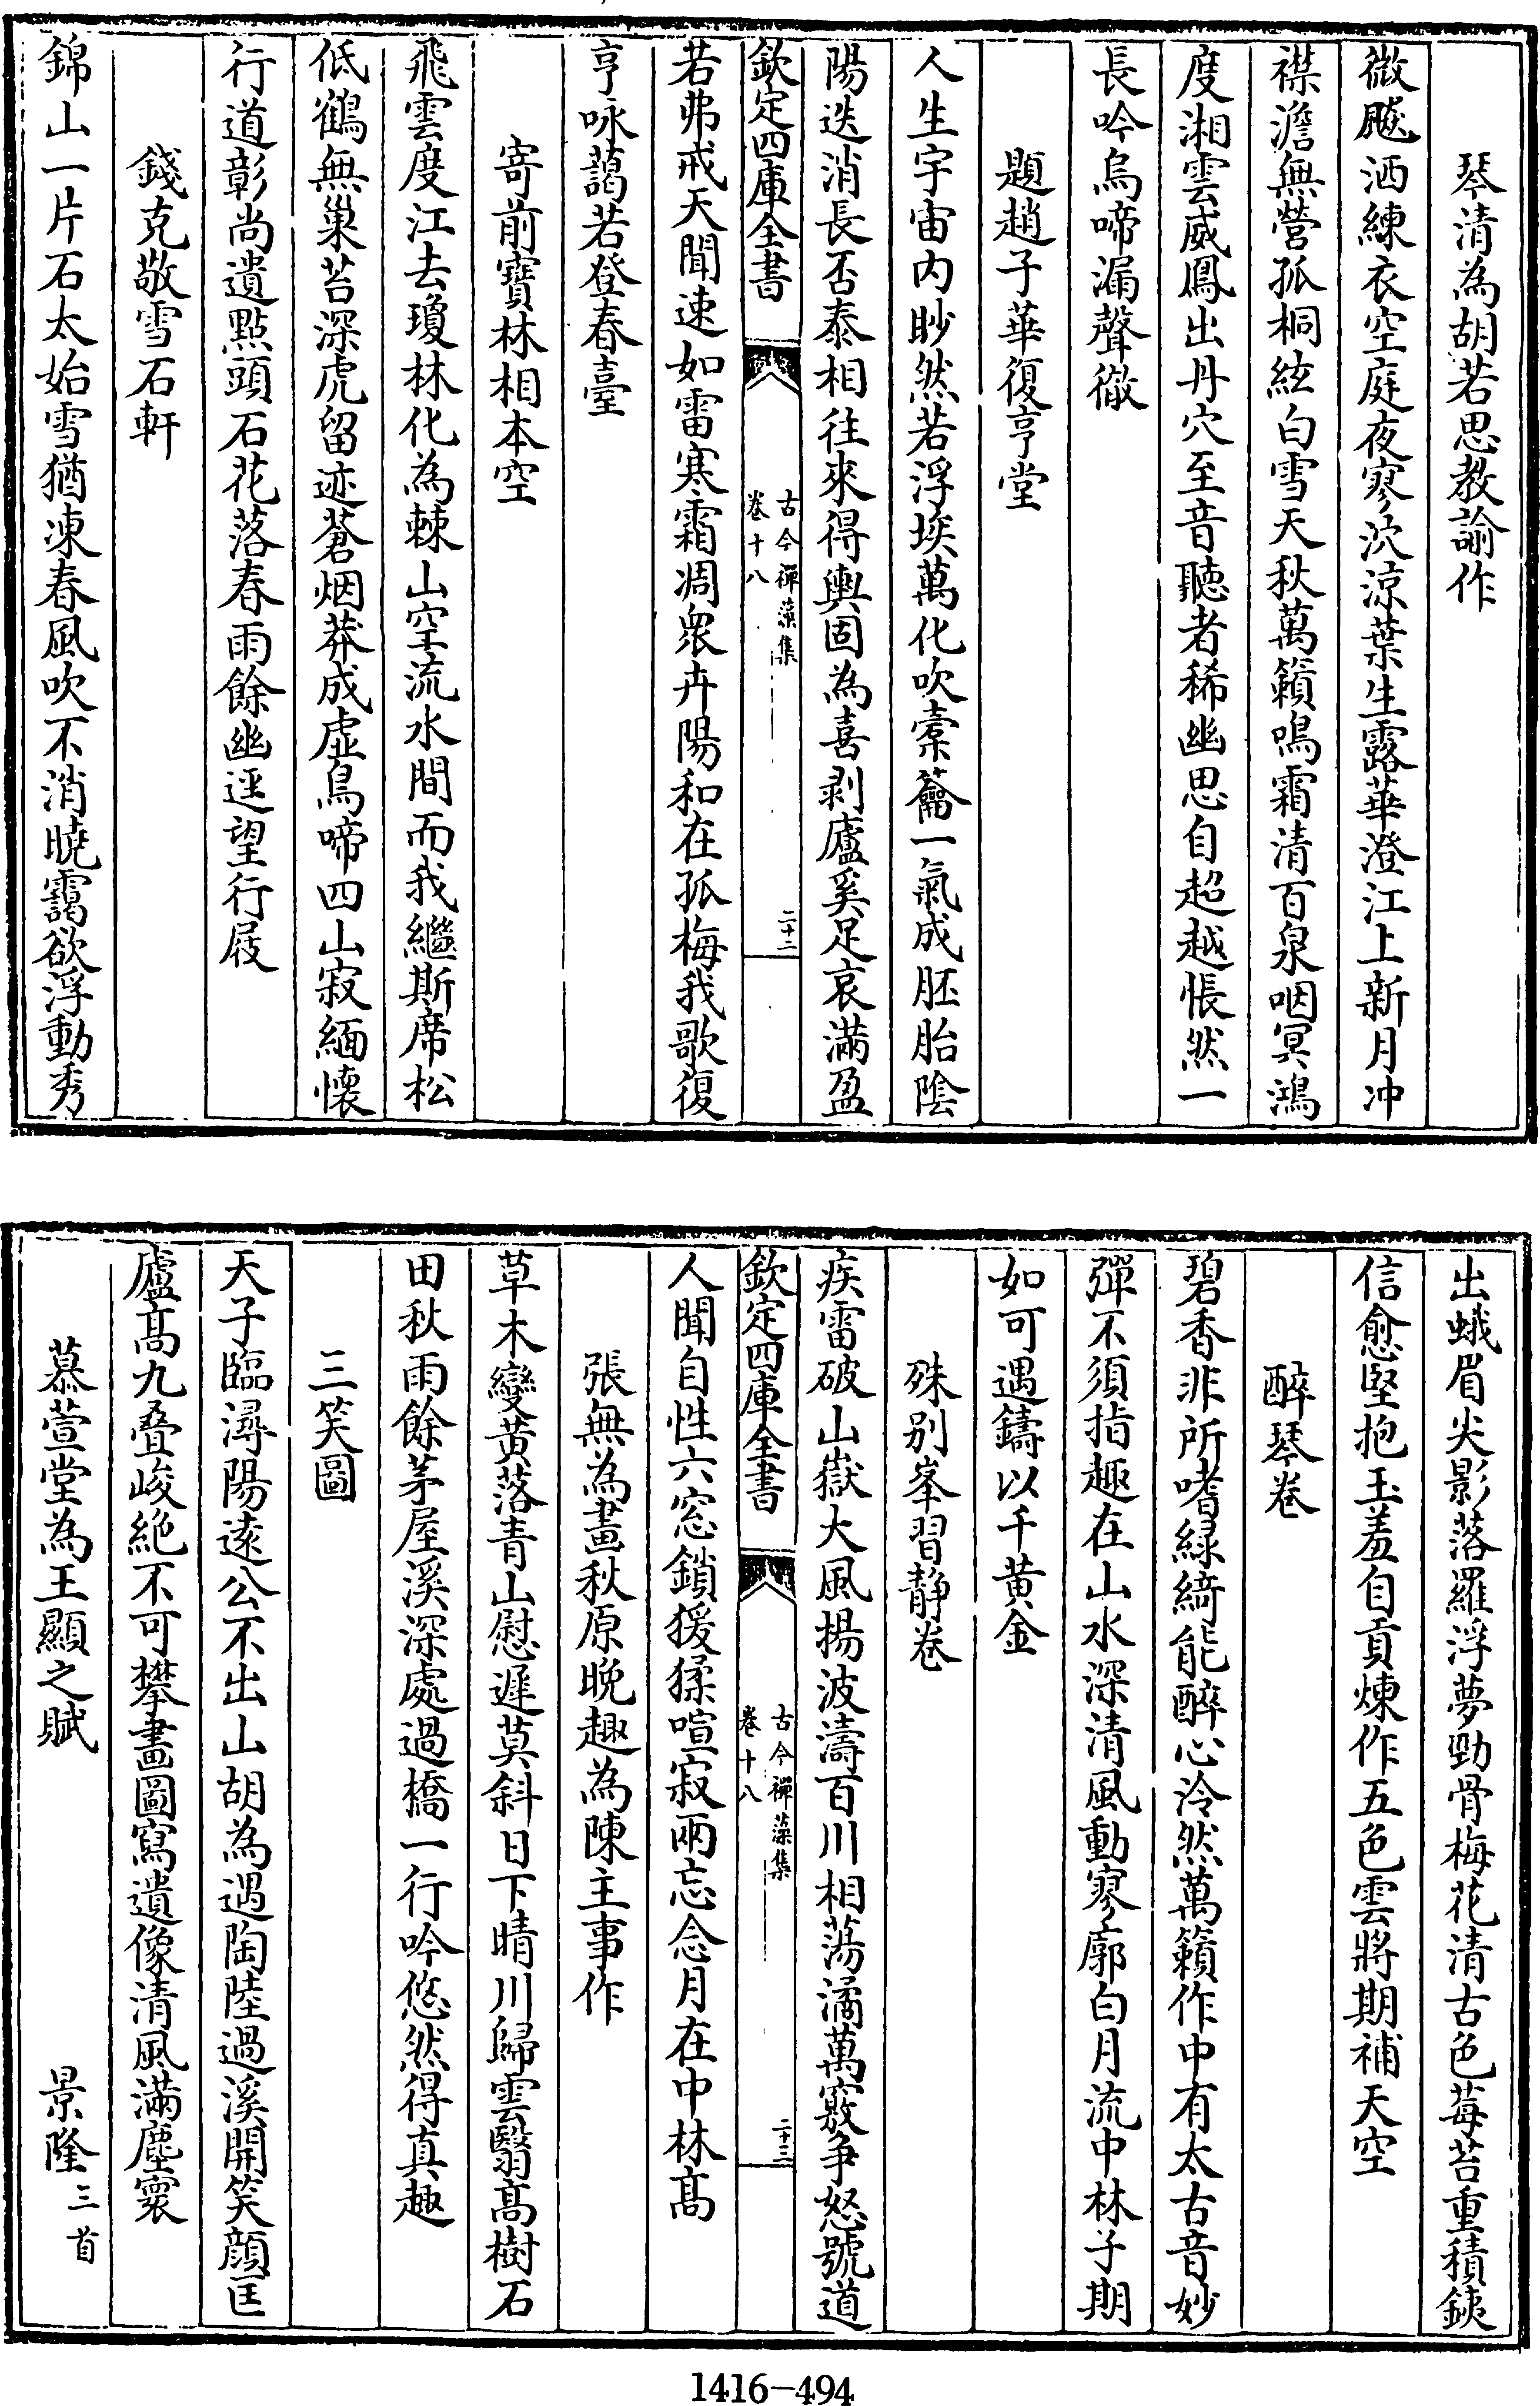 琴清為胡若思教諭作
微飈洒練衣空庭夜寥泬涼葉生露華澄江上新月冲
襟澹無營孤桐絃白雪天秋萬籟鳴霜清百泉咽冥鴻
度湘雲威鳳出丹穴至音聽者稀幽思自超越悵然一
長吟烏啼漏聲徹
題趙子華復亨堂
人生宇宙内眇然若浮埃萬化吹橐籥一氣成胚胎陰
陽迭消長否泰相往來得輿固為喜剥廬奚足哀滿盈
欽定四庫全書
古今禪藻集
卷十八
二十二
若弗戒天聞速如雷寒霜凋衆卉陽和在孤梅我歌復
亨咏藹若登春臺
寄前寳林相本空
飛雲度江去瓊林化為棘山空流水間而我繼斯席松
低鶴無巢苔深虎留迹蒼烟莽成虚鳥啼四山寂緬懷
行道彰尚遺點頭石花落春雨餘幽逕望行屐
錢克敬雪石軒
錦山一片石太始雪猶凍春風吹不消曉靄欲浮動秀
出蛾眉尖影落羅浮夢勁骨梅花清古色莓苔重積鋏
信愈堅抱玉羞自貢煉作五色雲將期補天空
醉琴卷
碧香非所嗜緑綺能醉心泠然萬籟作中有太古音妙
彈不須指趣在山水深清風動寥廓白月流中林子期
如可遇鑄以千黄金
殊别峯習静卷
疾雷破山嶽大風揚波濤百川相蕩潏萬竅争怒號道
欽定四庫全書
古今禪藻集
卷十八
二十三
人聞自性六窓鎖猨猱喧寂兩忘念月在中林髙
張無為畫秋原晚趣為陳主事作
草木變黄落青山慰遲莫斜日下晴川歸雲翳髙樹石
田秋雨餘茅屋溪深處過橋一行吟悠然得真趣
三笑圖
天子臨潯陽遠公不出山胡為遇陶陸過溪開笑顔匡
廬髙九叠峻絶不可攀畫圖寫遺像清風滿塵寰
慕萱堂為王顯之賦　景隆三首
1416-494